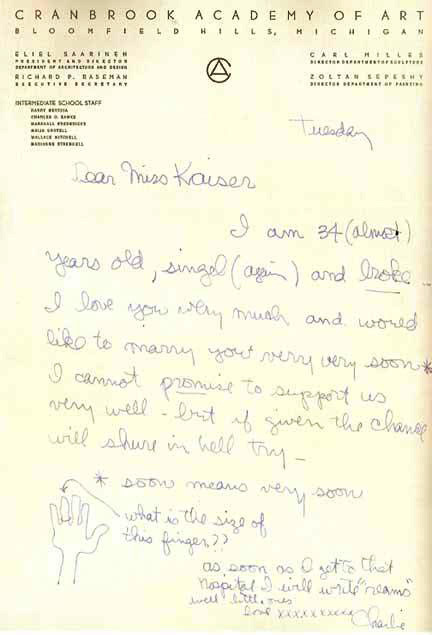 CRANBROOK ACADEMY OF ART
BLOOMFIELD HILLS, MICHIGAN
ELIEL SAARINEN
PRESIDENT AND DIRECTOR
DEPARTMENT OF ARCHITECTURE AND DESIGN
RICHARD P. RASEMAN
EXECUTIVE SECRETARY
CARL MILLES
DIRECTOR DEPARTMENT OF SCULPTURE
ZOLTAN SEPESHY
DIRECTOR DEPARTMENT OF PAINTING
INTERMEDIATE SCHOOL STAFF
HARRY BERTOIA
CHARLES O. EAMES
MARSHALL FREDERICKS
MAIJA GROTELL
WALLACE MITCHELL
MARIANNE STRENGELL
Tuesday
Dear Miss Kaiser
I am 34 (almost)
years old, singel (again) and broke.
I love you very much and would
like to marry you very very soon*
I cannot promise to support us
very well - but if given the chance
will shure in hell try -
* soon means very soon
what is the size of
this finger??
as soon as I get to that
hospital I will write "reams"
well little ones
love xxxxxxxxxx
Charlie